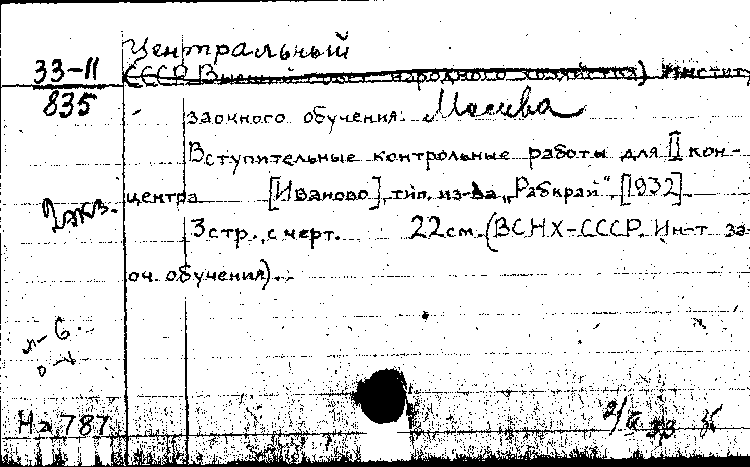 Центральный
33-11 (СССР. Высший совет народного хозяйства) Институ
835
заочного обучения. Москва
Вступительные контрольные работы для II кон-
центра [Иваново], тип. из-ва „Рабкрай“, [1932].
2 экз.
3 стр., с черт. 22 см. (ВСНХ-СССР. Ин-т за-
оч. обучения).
Нз 787